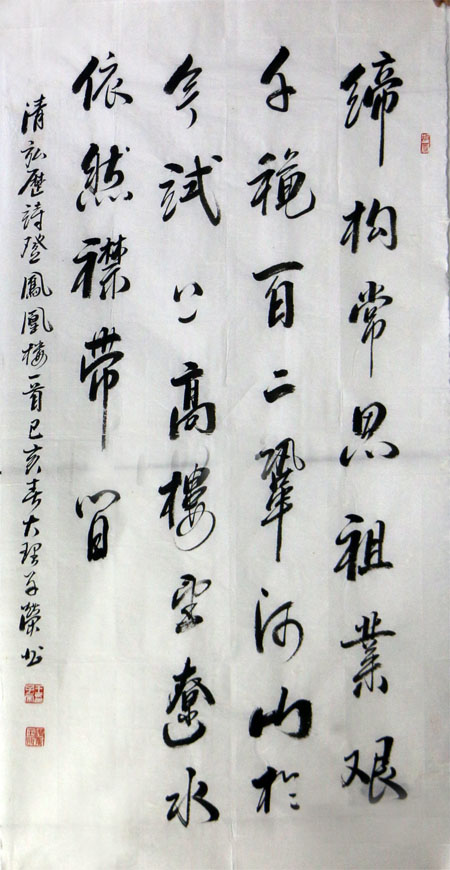 缔构常思祖業艰
千穐百二鞏河山於
今試上高樓望遼水
依然襟帶間
清弘歷詩登鳳凰樓一首己亥春大理子榮书